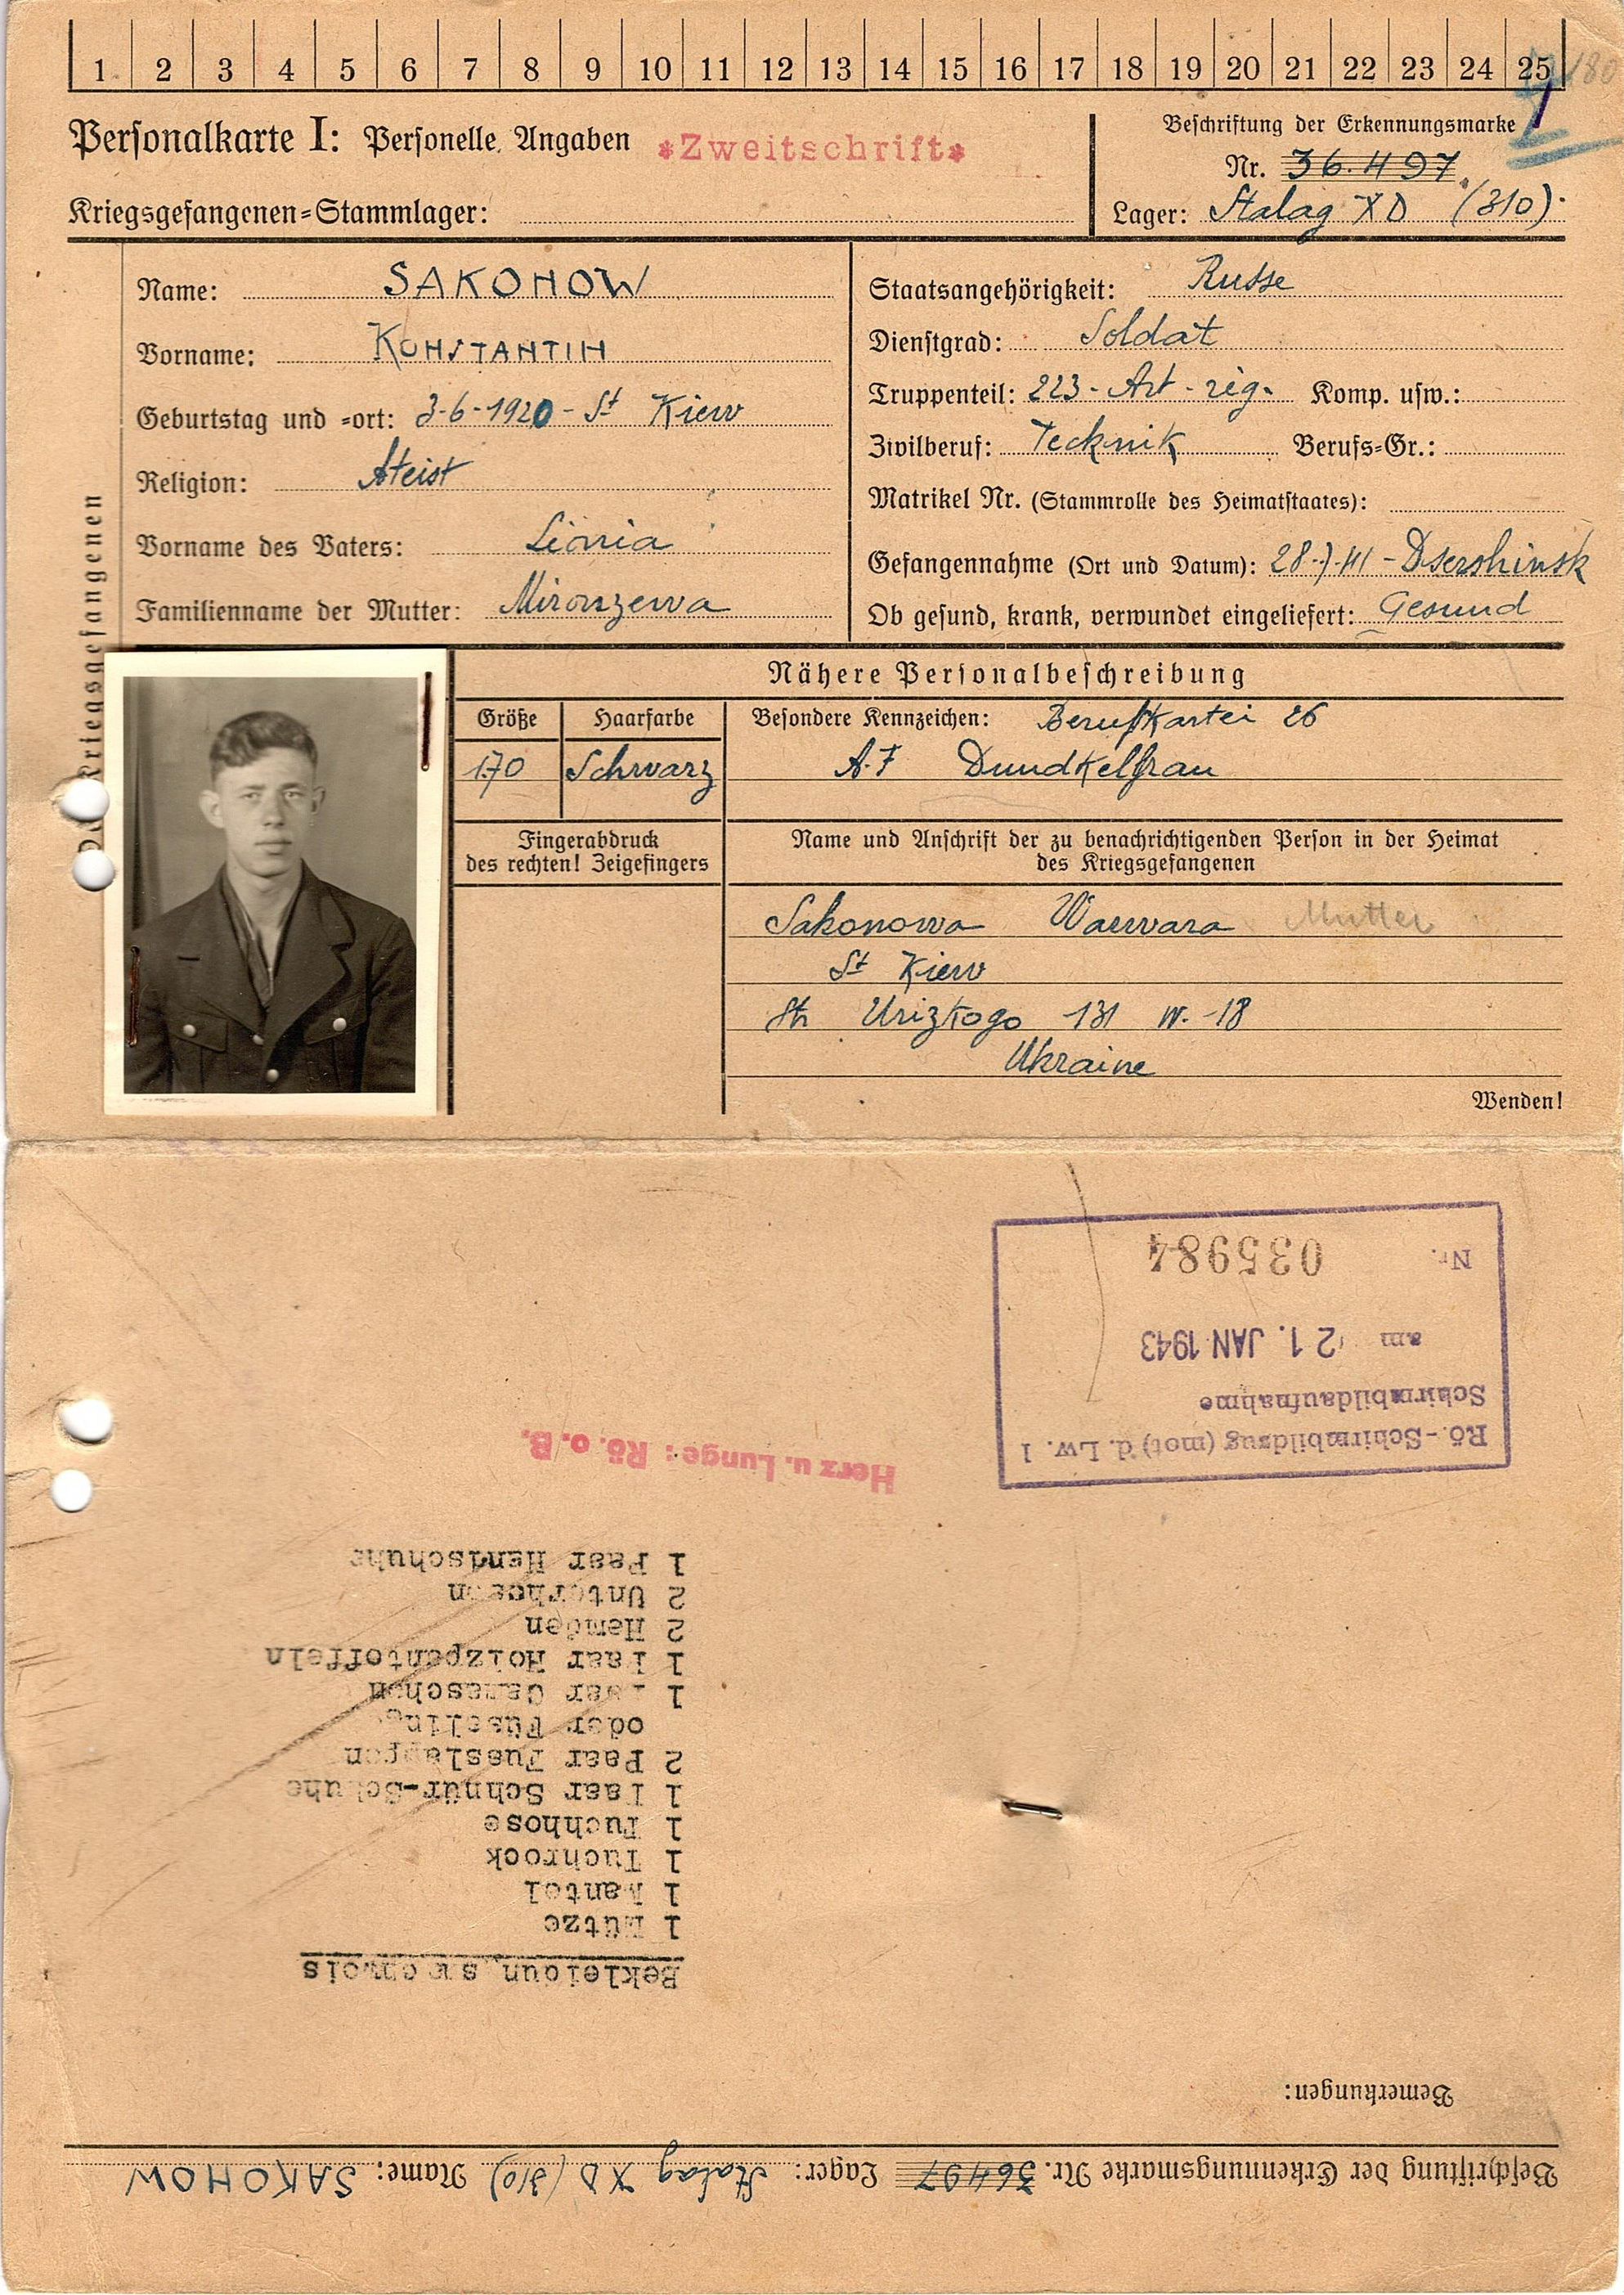 1 2 3 4 5 6 7 8 9 10 11 12 13 14 15 16 17 18 19 20 21 22 23 24 25
180
Personalkarte I: Personelle Angaben *Zweitschrift*
Kriegsgefangenen=Stammlager:
Beschriftung der Erkennungsmarke
Nr. 36497
Lager: Stalag XD (310).
Name: SAKOHOW
Vorname: KOHSTAHTIH
Geburtstag und =ort: 3-6-1920 - St Kiew
Religion: Ateist
Vorname des Vaters: Lionia
Familienname der Mutter: Mironzewa
Staatsangehörigkeit: Russe
Dienstgrad: Soldat
Truppenteil: 223-Art-reg. Komp. usw.:
Zivilberuf: Tecknik Berufs=Gr.:
Matrikel Nr. (Stammrolle des Heimatstaates):
Gefangennahme (Ort und Datum): 28.7.41 - Dsershinsk
Ob gesund, krank, verwundet eingeliefert: Gesund
Kriegsgefangenen
Nähere Personalbeschreibung
Größe Haarfarbe Besondere Kennzeichen: Berufkartei 26
170 Schwarz A.F Dundkelfrau
Fingerabdruck
des rechten! Zeigefingers
Name und Anschrift der zu benachrichtigenden Person in der Heimat
des Kriegsgefangenen
Sakonowa Warwara Mutter
St Kiew
Str Urizkogo 131 W. 18
Ukraine
Wenden!
Beschriftung der Erkennungsmarke Nr. 36497 Lager: Stalag XD (310) Name: SAKOHOW
Bemerkungen:
Bekleidungsnachweis
1 Mütze
1 Mantel
1 Tuchrock
1 Tuchhose
1 Paar Schnür-Schuhe
2 Paar Fusslappen
oder Füsslinge
1 Paar Gamaschen
1 Paar Holzpantoffeln
2 Hemden
2 Unterhosen
1 Paar Handschuhe
Herz u. Lunge: Rö. o. B.
Rö.-Schirmbildzug (mot) d. Lw. 1
Schirmbildaufnahme
am 21. JAN 1943
Nr. 035984